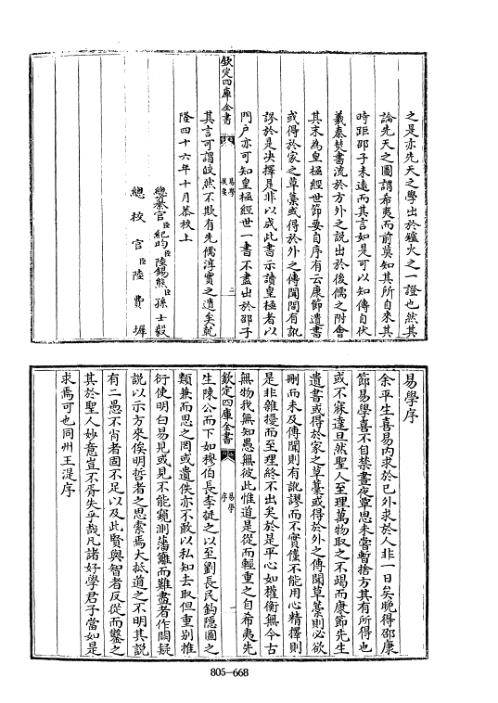 之是亦先天之學出於爐火之一證也然其
論先天之圖謂希夷而前莫知其所自來其
時距邵子未遠而其言如是可以知傳自伏
羲秦焚書流於方外之說出於後儒之附會
其末為皇極經世節要自序有云康節遺書
或得於家之草藁或得於外之傳聞間有訛
謬於是決擇是非以成此書示讀皇極者以
欽定四庫全書
易學
提要
二
門户亦可知皇極經世一書不盡出於邵子
其言可謂皎然不欺有先儒淳實之遺矣乾
隆四十六年十月恭校上
總纂官臣紀昀臣陸錫熊臣孫士毅
總校官臣陸費墀
易學序
余平生喜易內求於已外求於人非一日矣晚得邵康
節易學喜不自禁晝夜覃思未嘗暫捨方其有所得也
或不寐達旦然聖人至理萬物取之不竭而康節先生
遺書或得於家之草藁或得於外之傳聞草藁則必欲
刪而未及傳聞則有訛謬而不實僅不能用心精擇則
是非雜擾而至理終不出矣於是平心如權衡無今古
無物我無知愚無彼此惟道是從而輕重之自希夷先
欽定四庫全書
易學
序
一
生陳公而下如穆伯長李挺之以至劉長民鈎隱圖之
類兼而思之罔或遺佚亦不敢以私知去取但重别推
衍使明白易見或見不能窺測藩籬而難盡者作闕疑
說以示方來俟明哲者之思索焉大抵道之不明其說
有二愚不肖者固不足以及此賢與智者反從而鑿之
其於聖人妙意豈不胥失乎哉凡諸好學君子當如是
求焉可也同州王湜序
805—668